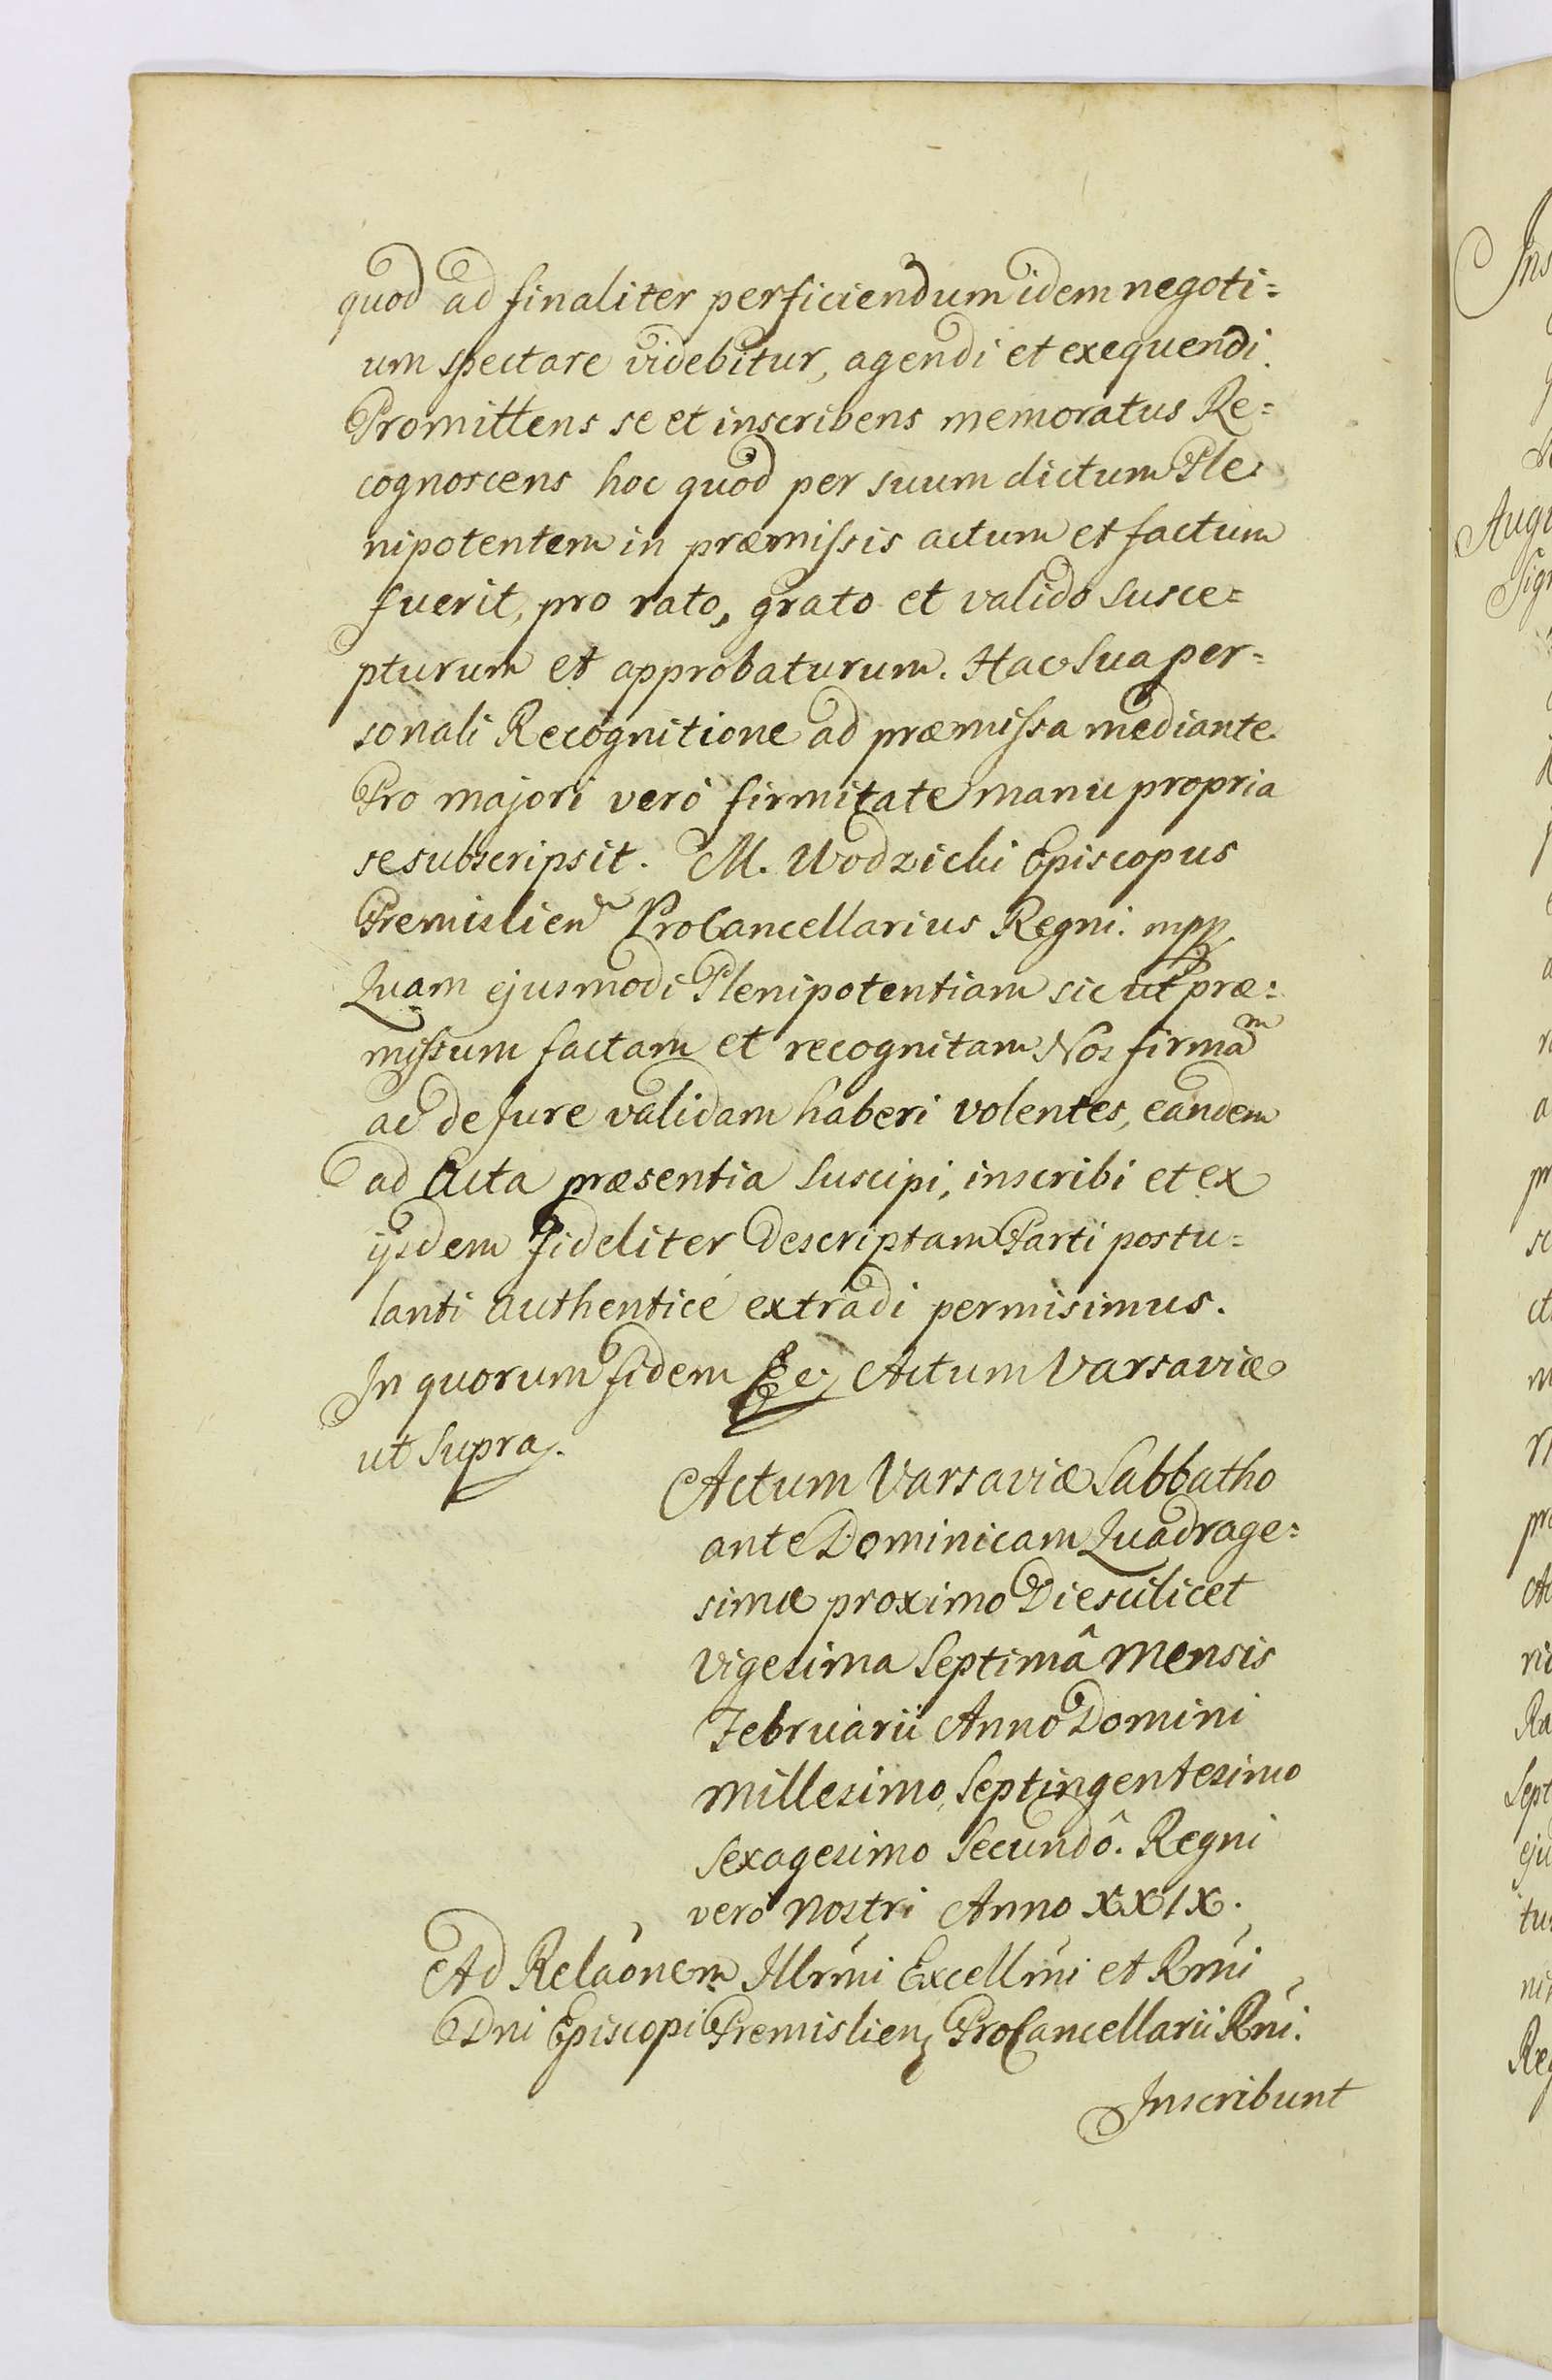 quod ad finaliter perficiendum idem negoti=
um spectare videbitur, agendi et exequendi.
Promittens se et inscribens memoratus Re=
cognoscens hoc quod per suum dictum Ple
nipotentem in præmissis actum et factum
fuerit, pro rato, grato et valido susce=
pturum et approbaturum. Hac sua per=
sonali Recognitione ad præmissa mediante.
Pro majori verò firmitate manu propria
se subscripsit. M. Wodzicki Episcopus
Premislien ProCancellarius Regni. mpp
Quam ejusmodi Plenipotentiam sic ut præ=
missum factam et recognitam Nos firmam
ac de Jure validam haberi volentes, eandem
ad Acta præsentia suscipi, inscribi et ex
ijsdem fideliter descriptam Parti postu=
lanti authenticé extradi permisimus.
In quorum fidem &c. Actum Varsaviæ
ut supra.
Actum Varsaviæ Sabbatho
ante Dominicam Quadrage=
simæ proximo Die scilicet
Vigesima Septimâ Mensis
Februarii Anno Domini
Millesimo, Septingentesimo
Sexagesimo Secundô. Regni
verò Nostri Anno XXIX.
Ad Relaõnem Illrmi Excellmi et Rmi
Dni Episcopi Premislien ProCancellarii Rni.
Inscribunt